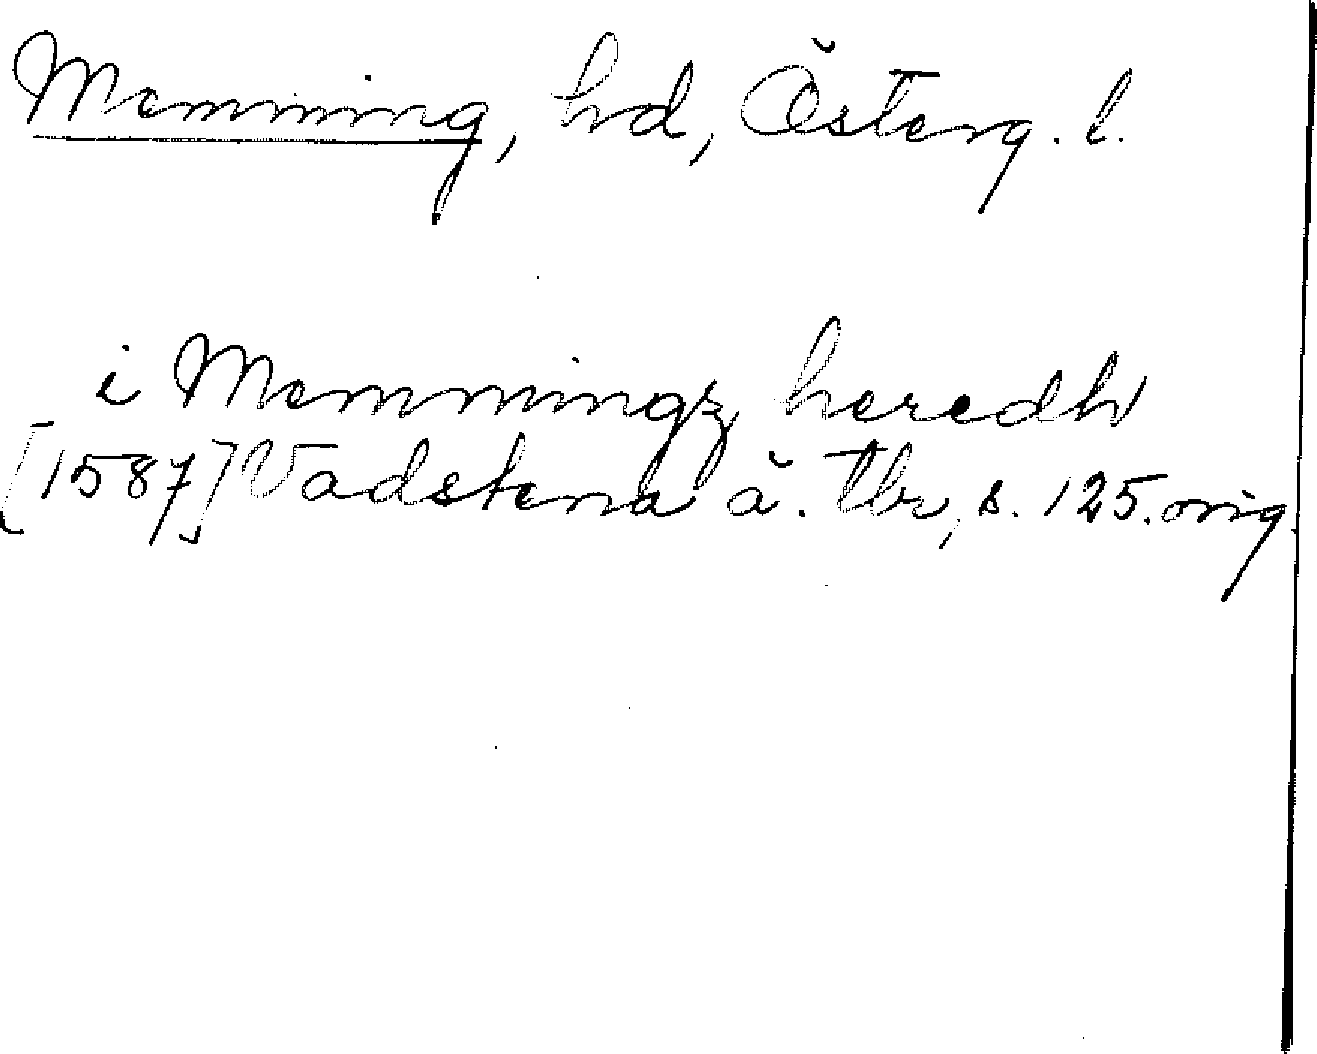 Memming, hd, Österg. l.
i Memmingz heredh
[1587] Vadstena ä. tbr, s. 125. orig.